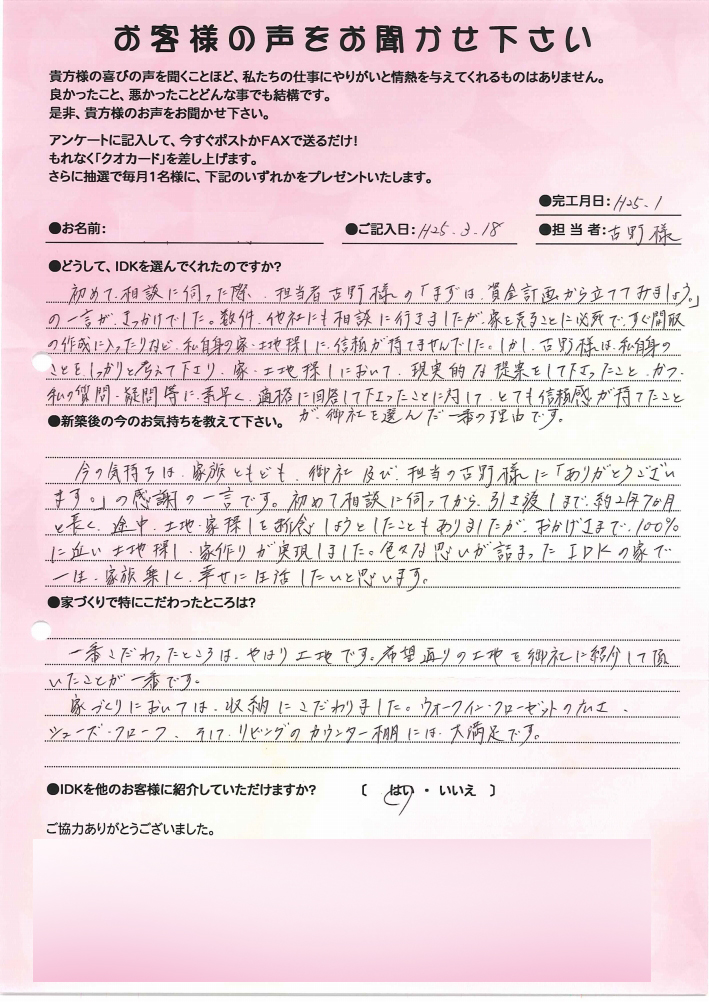 お客様の声をお聞かせ下さい
貴方様の喜びの声を聞くことほど、私たちの仕事にやりがいと情熱を与えてくれるものはありません。
良かったこと、悪かったことどんな事でも結構です。
是非、貴方様のお声をお聞かせ下さい。
アンケートに記入して、今すぐポストかFAXで送るだけ!
もれなく「クオカード」を差し上げます。
さらに抽選で毎月1名様に、下記のいずれかをプレゼントいたします。
●完工月日: H25.1
●お名前: ●ご記入日: H25.3.18 ●担当者: 古野様
●どうして、IDKを選んでくれたのですか?
初めて相談に伺った際、担当者古野様の「まずは、資金計画から立ててみましょう。」
の一言が、きっかけでした。数件、他社にも相談に行きましたが、家を売ることに必死で、すぐ間取
の作成に入ったりなど、私自身の家・土地探しに、信頼が持てませんでした。しかし、古野様は、私自身の
ことをしっかりと考えて下さり、家・土地探しにおいて、現実的な提案をして下さったこと、かつ、
私の質問・疑問等に、素早く、適格に回答して下さったことに対して、とても信頼感が持てたこと
が、御社を選んだ一番の理由です。
●新築後の今のお気持ちを教えて下さい。
今の気持ちは、家族ともども、御社及び、担当の古野様に「ありがとうござい
ます。」の感謝の一言です。初めて相談に伺ってから、引き渡しまで、約2年7か月
と長く、途中、土地・家探しを断念しようとしたこともありましたが、おかげさまで、100%
に近い土地探し、家作りが実現しました。色々な思いが詰まったIDKの家で
一生、家族楽しく、幸せに生活したいと思います。
●家づくりで特にこだわったところは?
一番こだわったところは、やはり土地です。希望通りの土地を御社に紹介して頂
いたことが一番です。
家づくりにおいては、収納にこだわりました。ウォークインクローゼットの広さ、
シューズ・クローク、そして、リビングのカウンター棚には、大満足です。
●IDKを他のお客様に紹介していただけますか? [ はい ・ いいえ ]
ご協力ありがとうございました。